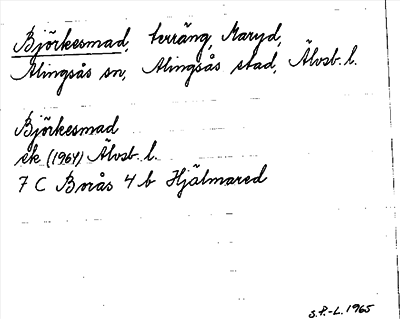 Björkesmad, terräng, Maryd,
Alingsås sn, Alingsås stad, Älvsb. l.
Björkesmad
ek (1964) Älvsb. l.
7 C Borås 4 b Hjälmared
S.P.-L. 1965